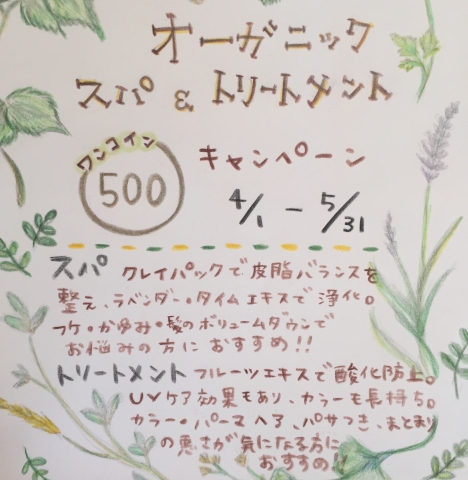 オーガニック
スパ & トリートメント
ワンコイン
500
キャンペーン
4/1 - 5/31
スパ クレイパックで皮脂バランスを
整え、ラベンダー・タイムエキスで浄化。
フケ・かゆみ・髪のボリュームダウンで
お悩みの方におすすめ!!
トリートメント フルーツエキスで酸化防止。
UVケア効果もあり、カラーも長持ち。
カラー・パーマヘア、パサつき、まとまり
の悪さが気になる方に
おすすめ!!